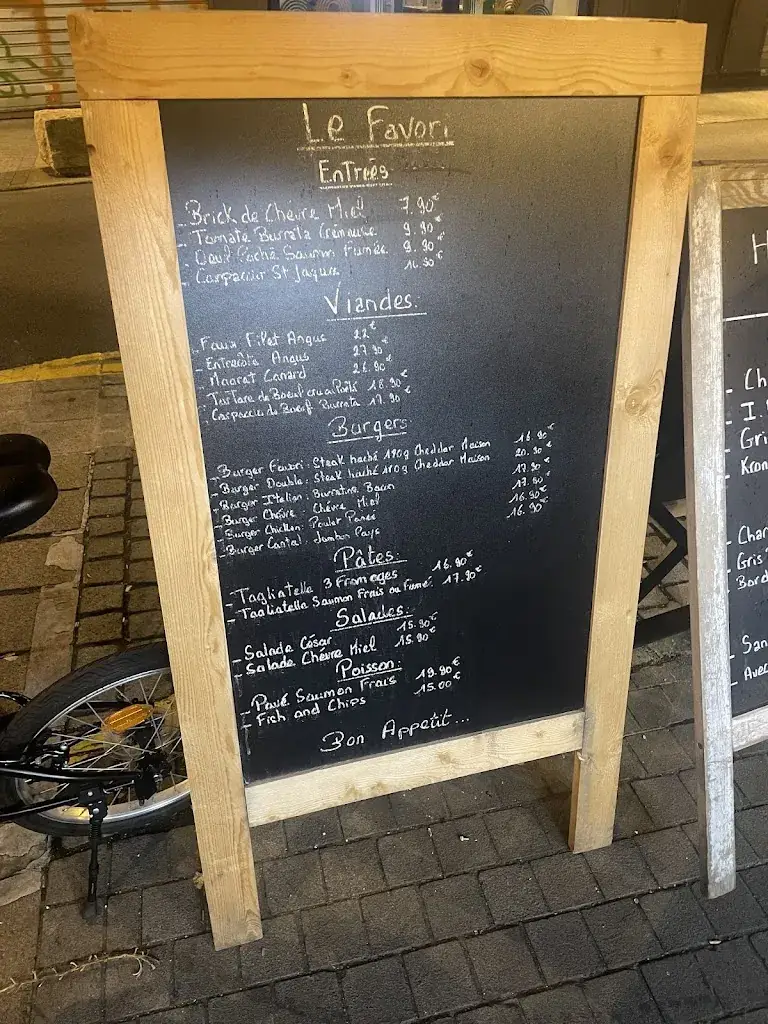 Le Favori
Entrées
- Brick de Chèvre Miel 7.90€
- Tomate Burrata Crémeuse 9.90€
- Oeuf Poché Saumon Fumée 9.90€
- Carpaccio St Jaque 14.90€
Viandes:
- Faux Filet Angus 22€
- Entrecôte Angus 27.90€
- Magret Canard 21.90€
- Tartare de Boeuf cru ou Poêlé 18.90€
- Carpaccio de Boeuf Burrata 17.90€
Burgers
- Burger Favori: Steak haché 180g Cheddar Maison 16.90€
- Burger Double: Steak haché 180g Cheddar Maison 20.90€
- Burger Italien: Burratina Bacon 17.90€
- Burger Chèvre: Chèvre Miel 17.90€
- Burger Chicken: Poulet Panés 16.90€
- Burger Cantal: Jambon Pays 16.90€
Pâtes:
- Tagliatelle 3 Fromages 16.90€
- Tagliatelle Saumon Frais ou Fumé: 17.90€
Salades:
- Salade César 15.90€
- Salade Chèvre Miel 15.90€
Poisson:
- Pavé Saumon Frais 19.90€
- Fish and Chips 15.00€
Bon Appetit...
H
- Ch
- I.
- Gri
- Kron
- Char
- Gris
- Bord
- San
- Avec